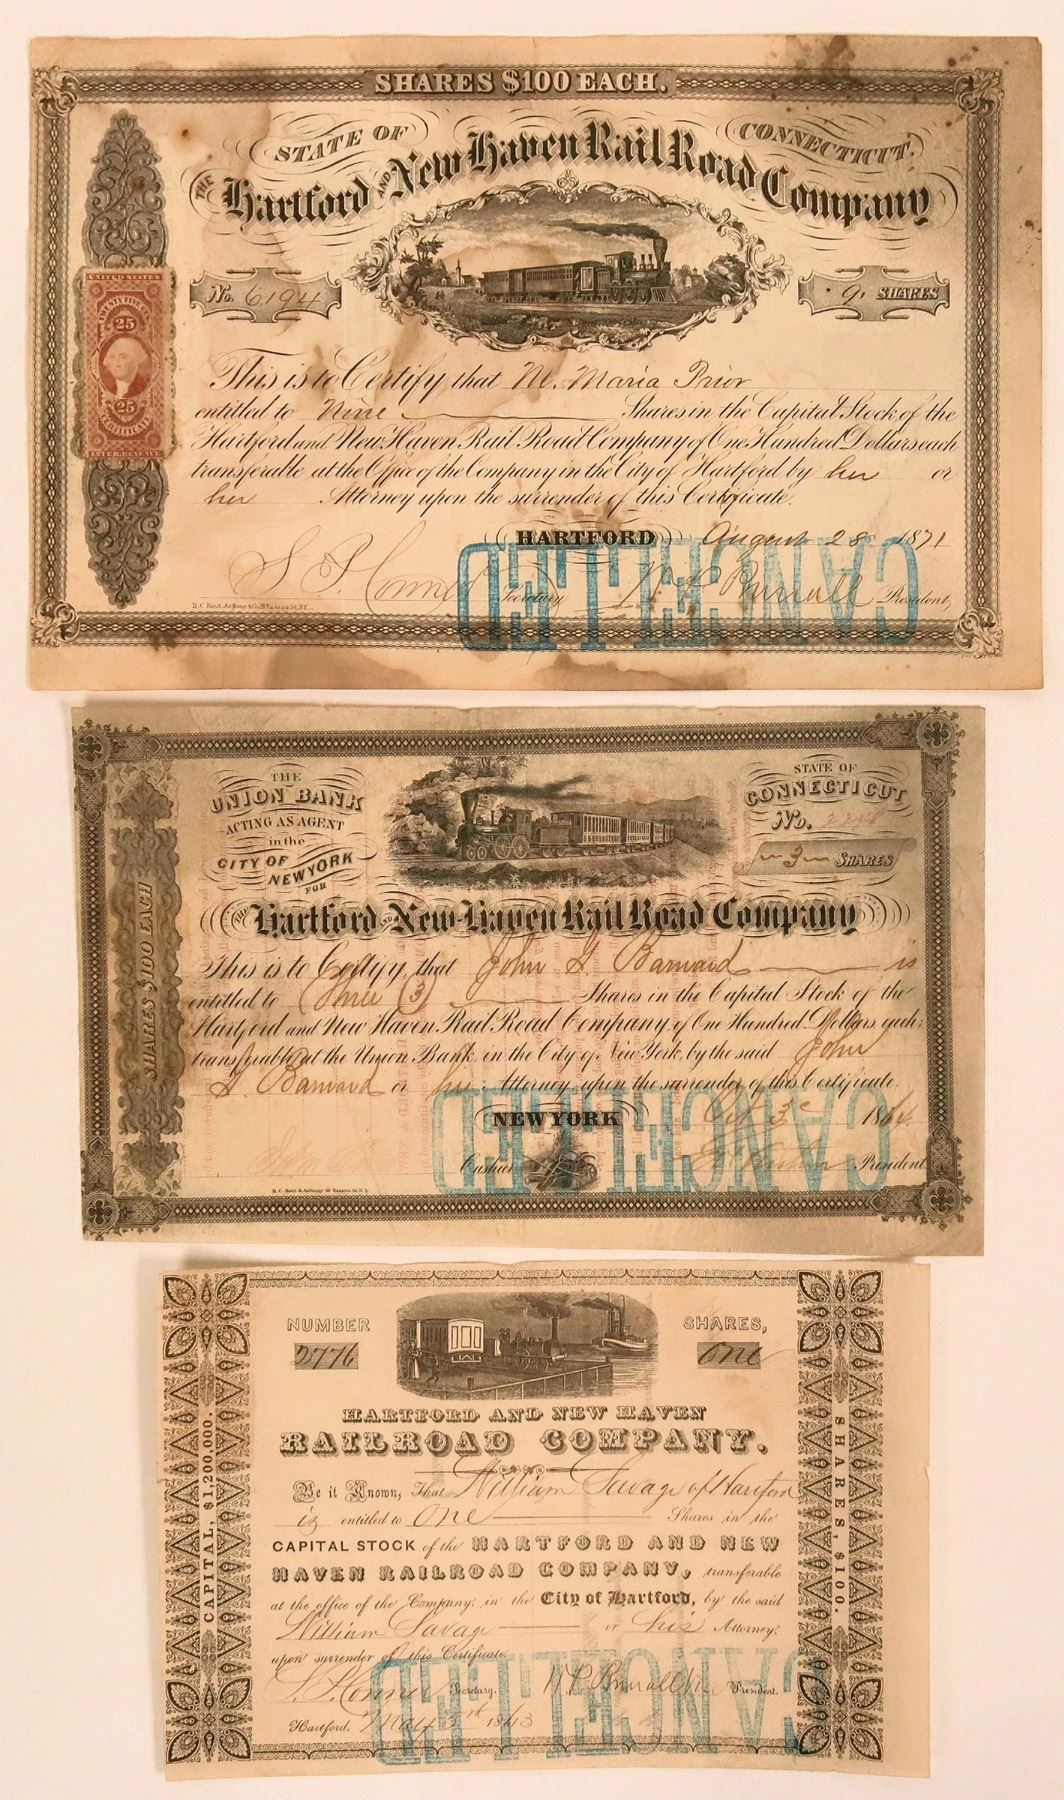 SHARES $100 EACH.
STATE OF CONNECTICUT.
THE Hartford AND New Haven Rail Road Company
UNITED STATES
TWENTY FIVE CTS
25
25
CERTIFICATE
INTER. REVENUE
No. 6194
9 SHARES
This is to Certify that M. Maria Prior
entitled to Nine Shares in the Capital Stock of the
Hartford and New Haven Rail Road Company of One Hundred Dollars each
transferable at the Office of the Company in the City of Hartford by her or
her Attorney upon the surrender of this Certificate.
HARTFORD August 28 1871
Secretary President
CANCELLED
THE
UNION BANK
ACTING AS AGENT
in the
CITY OF
NEW YORK
FOR
STATE OF
CONNECTICUT
No.
3 SHARES
SHARES $100 EACH
THE Hartford AND New-Haven Rail Road Company
This is to Certify that John G Barnard is
entitled to Three (3) Shares in the Capital Stock of the
Hartford and New Haven Rail Road Company of One Hundred Dollars each;
transferable at the Union Bank in the City of New York, by the said John
G. Barnard or his Attorney upon the surrender of this Certificate.
NEW YORK Oct 3 1864
Cashier President
CANCELLED
NUMBER
2776
SHARES,
One
HARTFORD AND NEW HAVEN
RAILROAD COMPANY.
CAPITAL, $1,200,000.
SHARES, $100.
Be it Known, That William Savage of Hartford
is entitled to One Shares in the
CAPITAL STOCK of the HARTFORD AND NEW
HAVEN RAILROAD COMPANY, transferable
at the office of the Company, in the City of Hartford, by the said
William Savage or his Attorney,
upon surrender of this Certificate.
Secretary. President.
Hartford,
CANCELLED